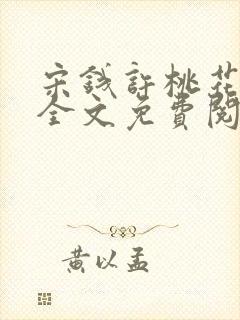 宋錢許桃花
全文免費閱
黃以孟